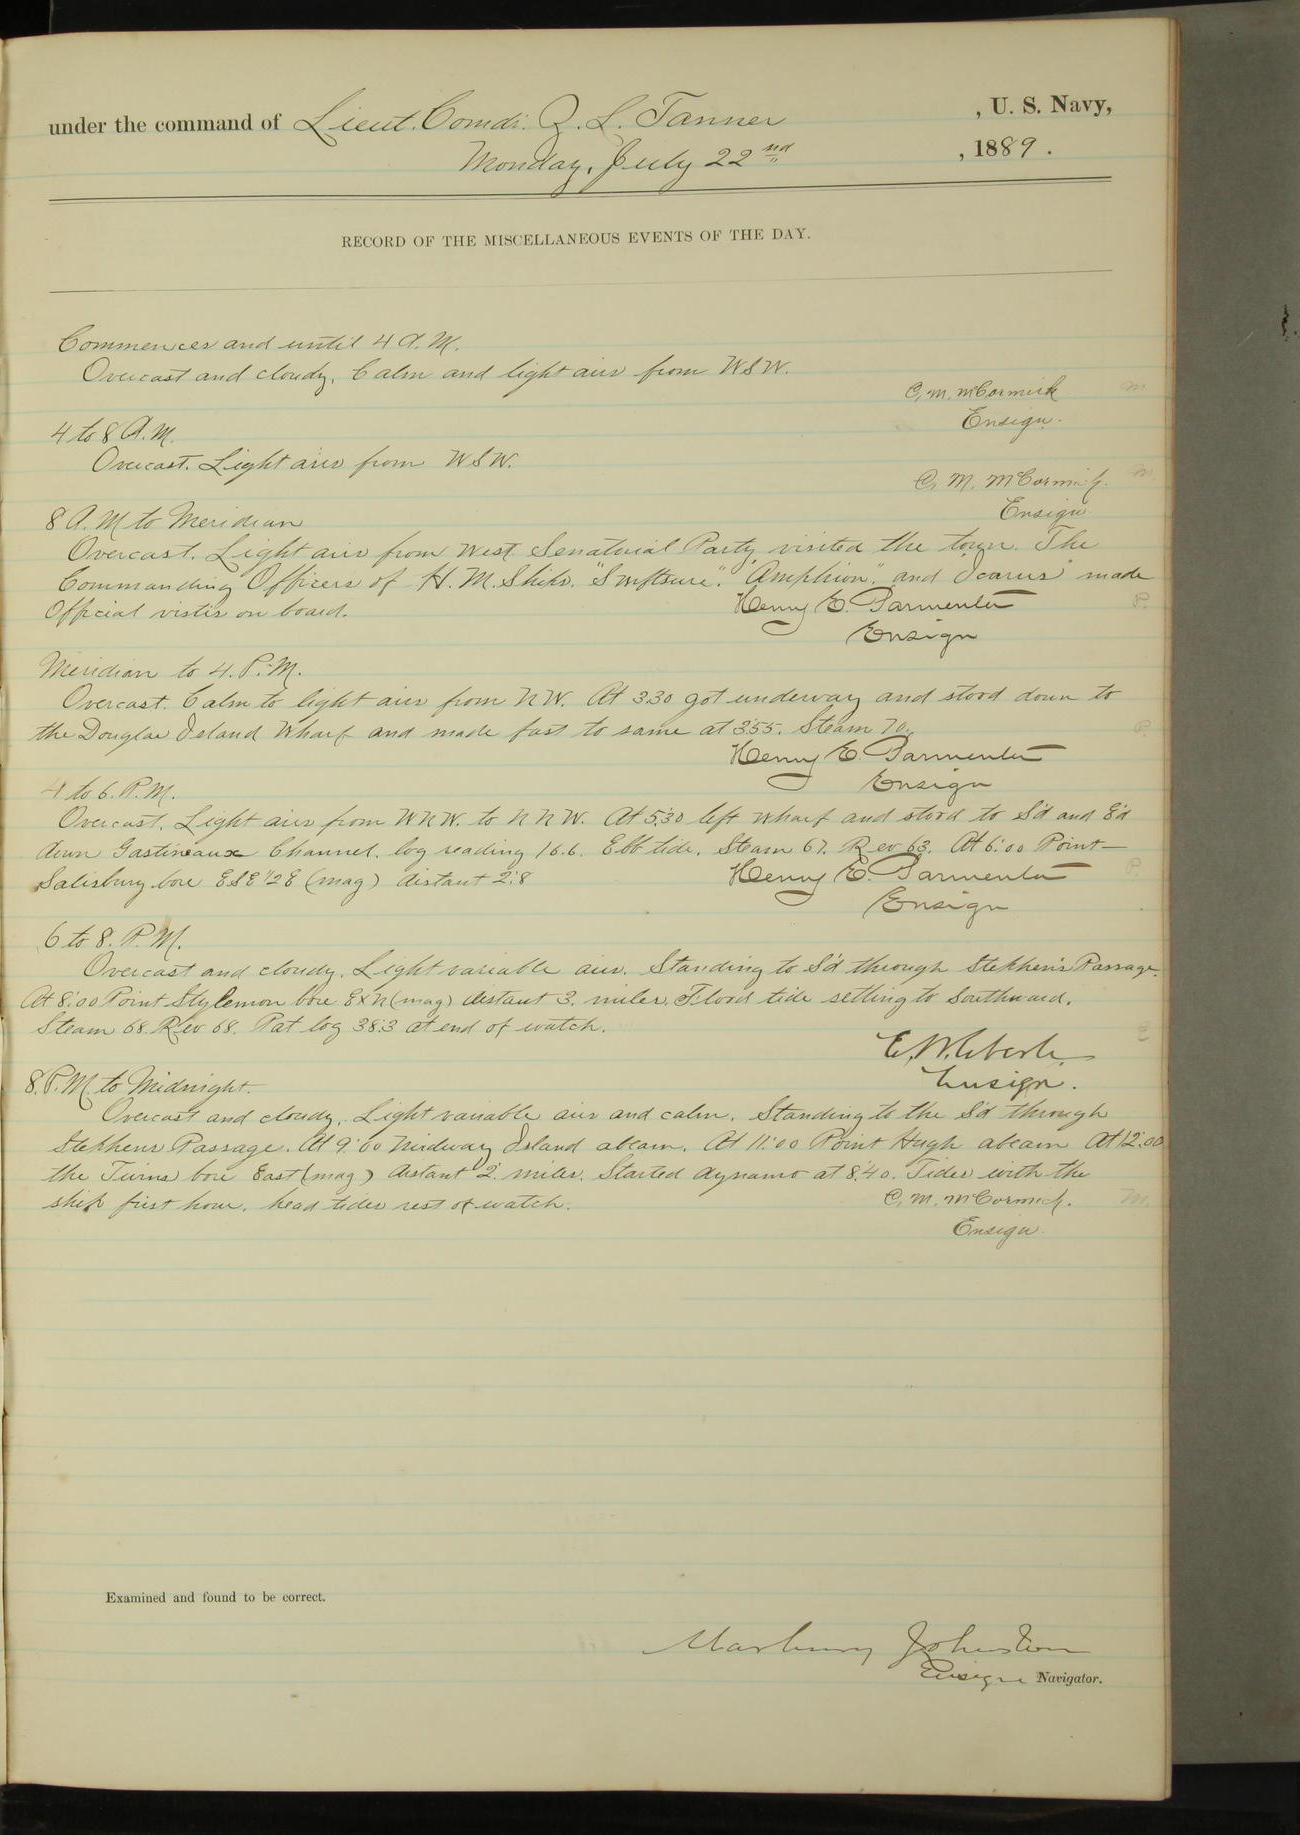 under the command of Lieut. Comdr. Z. L. Tanner , U. S. Navy,
Monday, July 22nd , 1889.
RECORD OF THE MISCELLANEOUS EVENTS OF THE DAY.
Commences and until 4 A.M.
Overcast and cloudy. Calm and light airs from WSW.
C. M. McCormick
Ensign.
4 to 8 A.M.
Overcast. Light airs from WSW.
C. M. McCormick.
Ensign
8 A.M to Meridian
Overcast. Light airs from West. Senatorial Party visited the town. The
Commanding Officers of H. M. Ships. "Swiftsure". "Amphion". and Icarus" made
Official visits on board.
Henry E. Parmenter
Ensign
Meridian to 4. P.M.
Overcast. Calm to light airs from NW. At 3.30 got underway and stood down to
the Douglas Island Wharf and made fast to same at 3.55. Steam 70.
Henry E. Parmenter
Ensign
4 to 6. P.M.
Overcast. Light airs from WNW. to NNW. At 5.30 left wharf and stood to S'd and E'd
down Gastineaux Channel. log reading 16.6. Ebb tide. Steam 67. Rev 63. At 6:00 Point
Salisbury bore ESE 1/2 E (mag) distant 2'.8
Henry E. Parmenter
Ensign
6 to 8. P.M.
Overcast and cloudy. Light variable airs. Standing to S'd through Stephens Passage.
At 8:00 Point Stylemon bore ExN (mag) distant 3. miles. Flood tide setting to Southward.
Steam 68. Rev 68. Pat log 38.3 at end of watch.
E. W. Eberle
Ensign.
8. P.M. to Midnight.
Overcast and cloudy. Light variable airs and calm. Standing to the S'd through
Stephens Passage. At 9:00 Midway Island abeam. At 11:00 Point Hugh abeam At 12:00
the Twins bore East (mag) distant 2. miles. Started dynamo at 8.40. Tides with the
ship first hour. head tides rest of watch.
C. M. McCormick.
Ensign
Examined and found to be correct.
Marbury Johnston
Ensign Navigator.